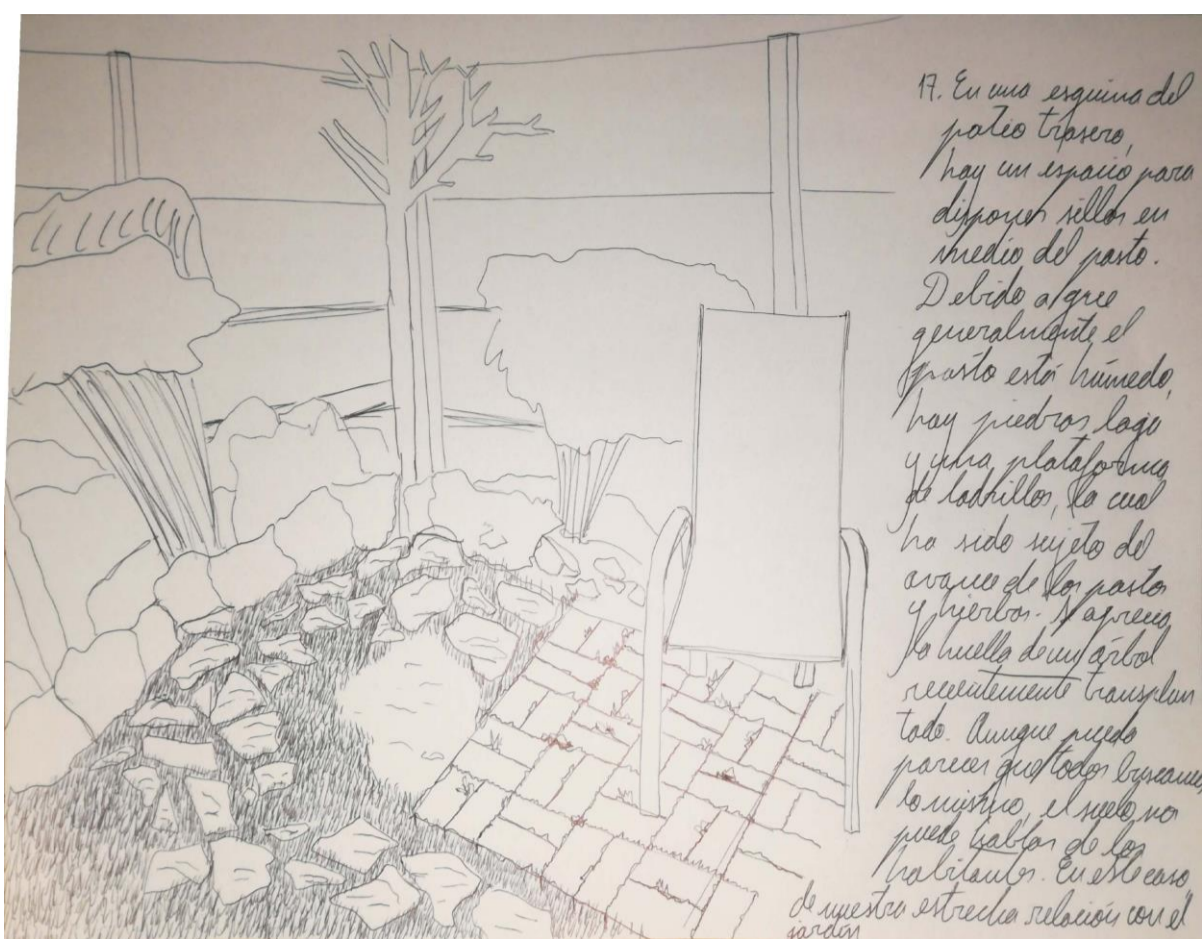 17. En una esquina del
patio trasero,
hay un espacio para
disponer sillas en
medio del pasto.
Debido a que
generalmente el
pasto está húmedo,
hay piedras laja
y una plataforma
de ladrillos, la cual
ha sido sujeto del
avance de los pastos
y hierbas. Se aprecia
la huella de un árbol
recientemente transplan
tado. Aunque pueda
parecer que todos buscamos
lo mismo, el suelo nos
puede hablar de los
habitantes. En este caso
de nuestra estrecha relación con el
jardín